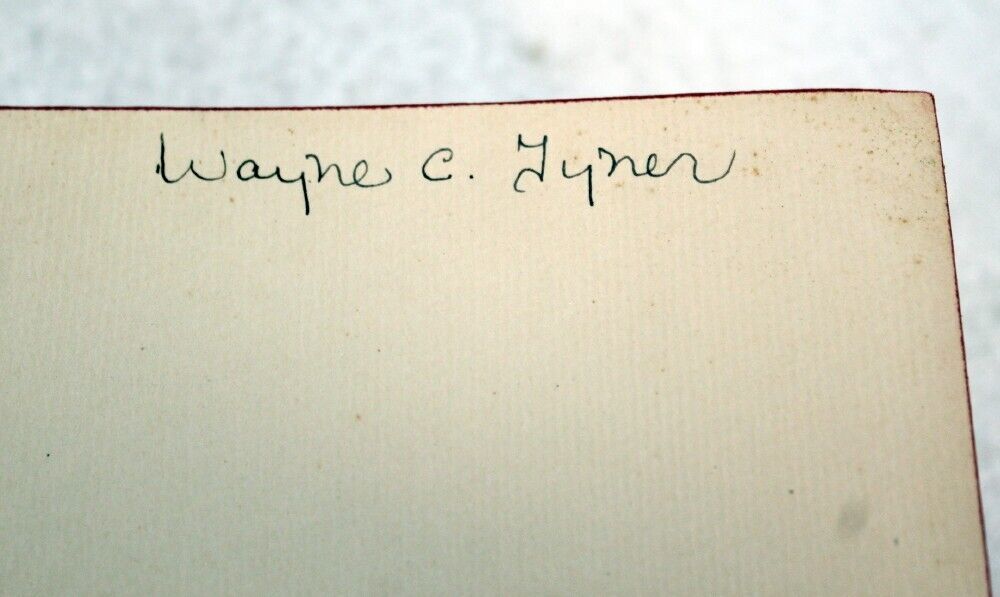 Wayne C. Tyner